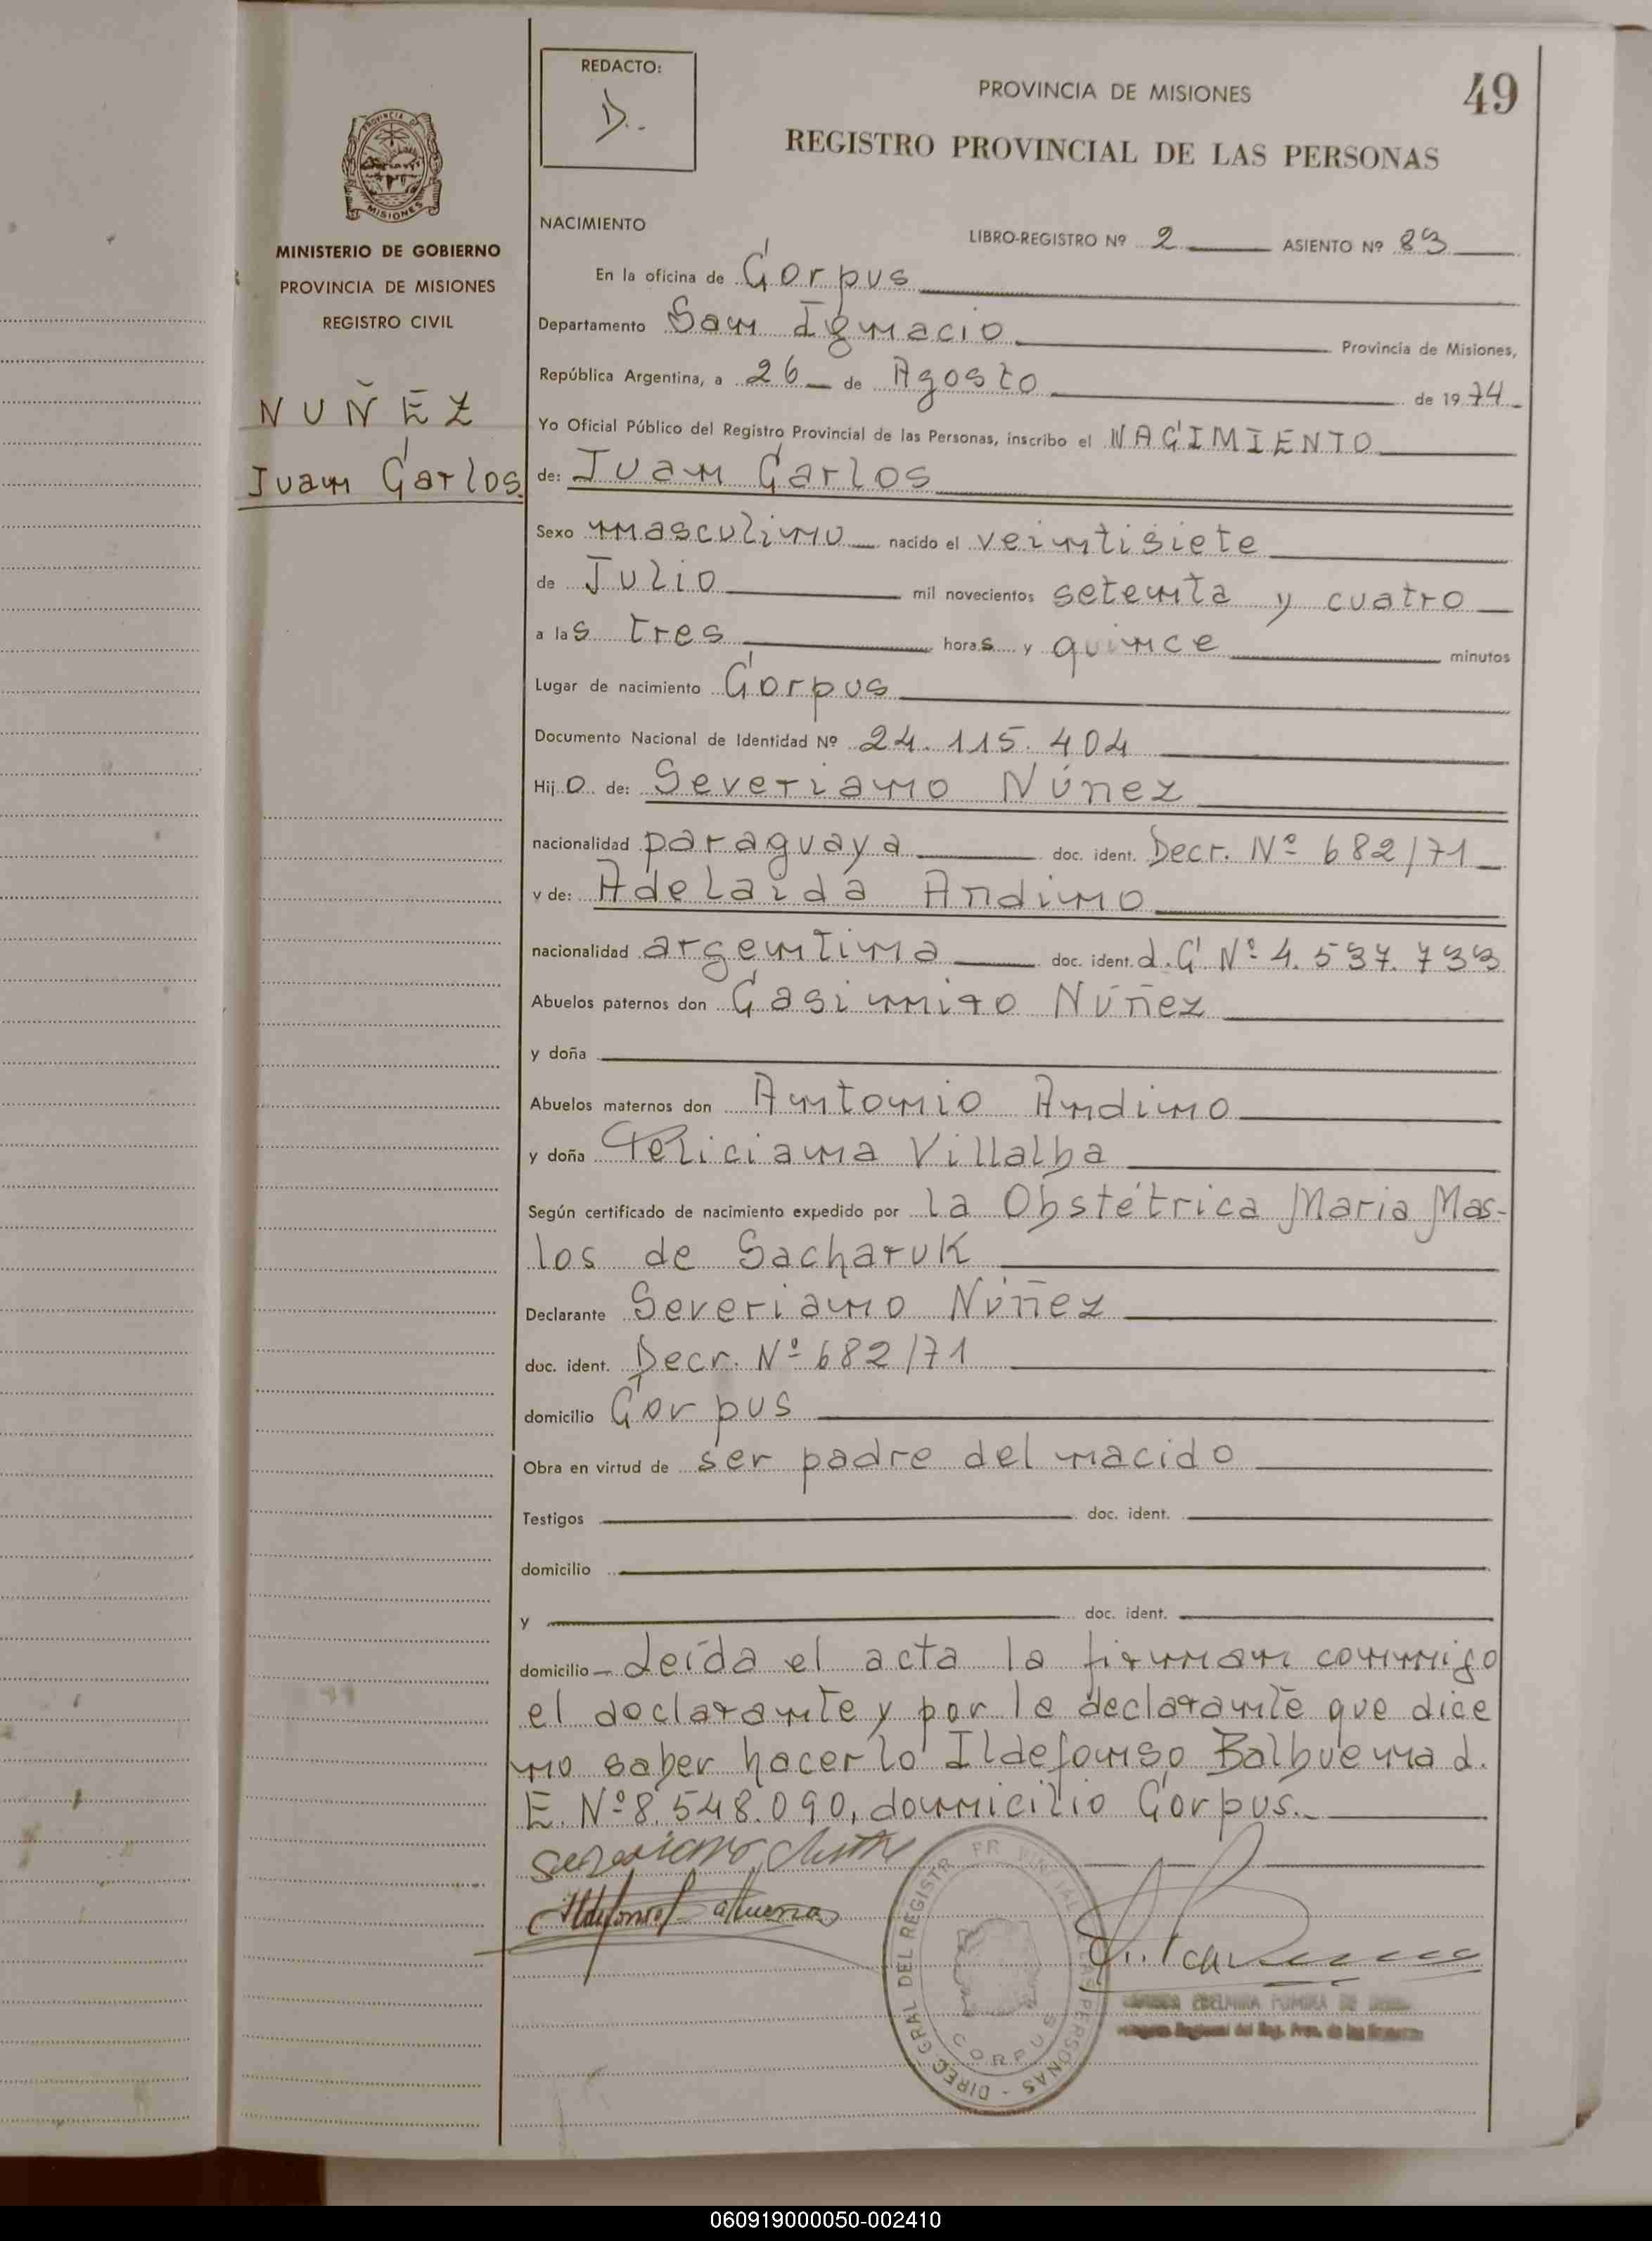 REDACTO:
D.-
PROVINCIA DE MISIONES
49
REGISTRO PROVINCIAL DE LAS PERSONAS
PROVINCIA DE
MISIONES
MINISTERIO DE GOBIERNO
PROVINCIA DE MISIONES
REGISTRO CIVIL
NUÑEZ
Juan Carlos
NACIMIENTO
LIBRO-REGISTRO Nº 2 ASIENTO Nº 83
En la oficina de Corpus
Departamento San Ignacio Provincia de Misiones,
República Argentina, a 26 de Agosto de 1974
Yo Oficial Público del Registro Provincial de las Personas, inscribo el NACIMIENTO
de: Juan Carlos
Sexo masculino nacido el veintisiete
de Julio mil novecientos setenta y cuatro
a las tres horas y quince minutos
Lugar de nacimiento Corpus
Documento Nacional de Identidad Nº 24.115.404
Hijo de: Severiano Núnez
nacionalidad paraguaya doc. ident. Decr. Nº 682/71
y de: Adelaida Andino
nacionalidad argentina doc. ident. d.C Nº 4.537.733
Abuelos paternos don Casimiro Núñez
y doña
Abuelos maternos don Antonio Andino
y doña Feliciana Villalba
Según certificado de nacimiento expedido por la Obstétrica Maria Mas-
los de Sacharuk
Declarante Severiano Núñez
doc. ident. Decr. Nº 682/71
domicilio Corpus
Obra en virtud de ser padre del nacido
Testigos doc. ident.
domicilio
y doc. ident.
domicilio - Leída el acta la firman conmigo
el declarante y por la declarante que dice
no saber hacerlo Ildefonso Balbuena d.
E. Nº 8.548.090, domicilio Corpus.
DIREC. GRAL DEL REGISTR PERSONAS
CORPUS
060919000050-002410